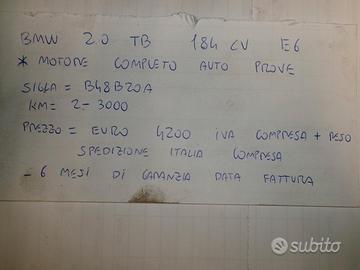 BMW 2.0 TB 184 CV E6
* MOTORE COMPLETO AUTO PROVE
SIGLA = B48B20A
KM = 2-3000
PREZZO = EURO 4200 IVA COMPRESA + RESO
SPEDIZIONE ITALIA COMPRESA
- 6 MESI DI GARANZIA DATA FATTURA
subito